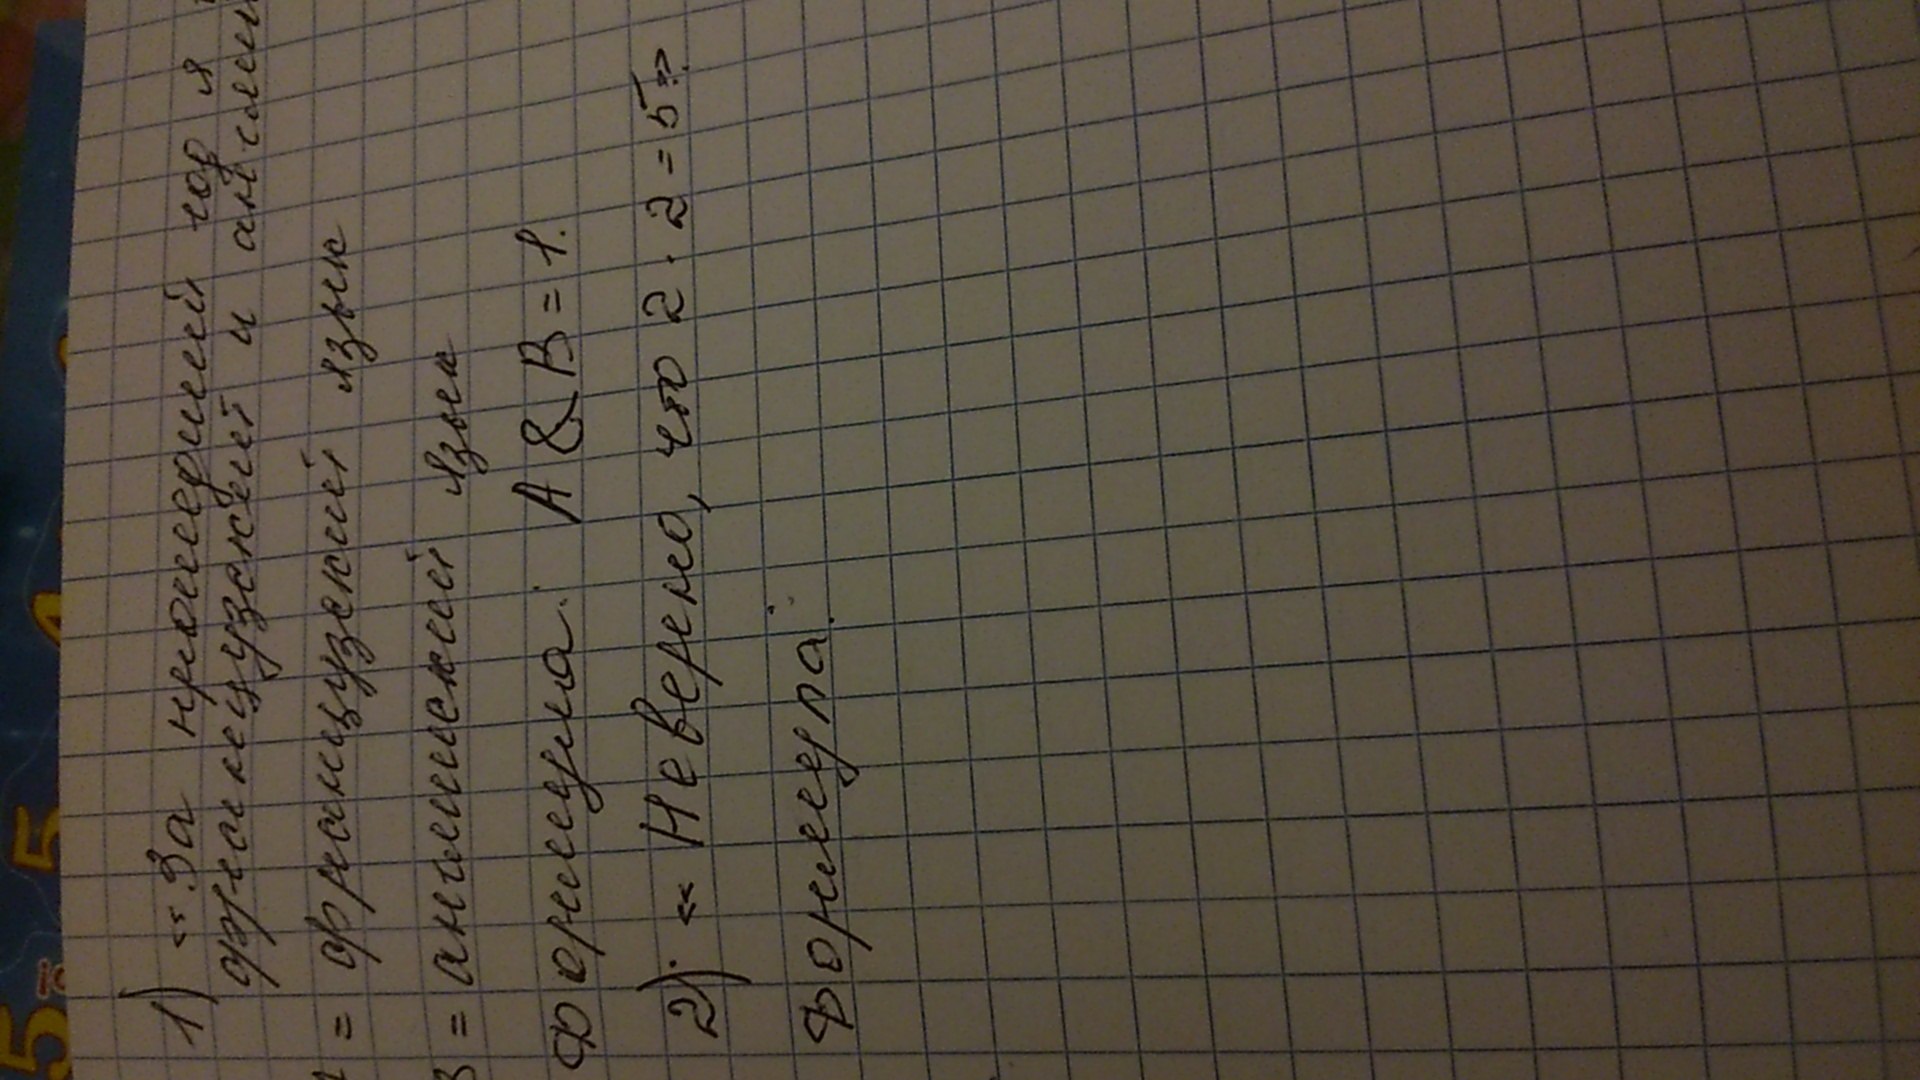 1) "За прошедший год я
французский и английс
= французский язык
B = английский язык
Формула: A & B = 1.
2). "Неверно, что 2 · 2 = 5"
Формула: